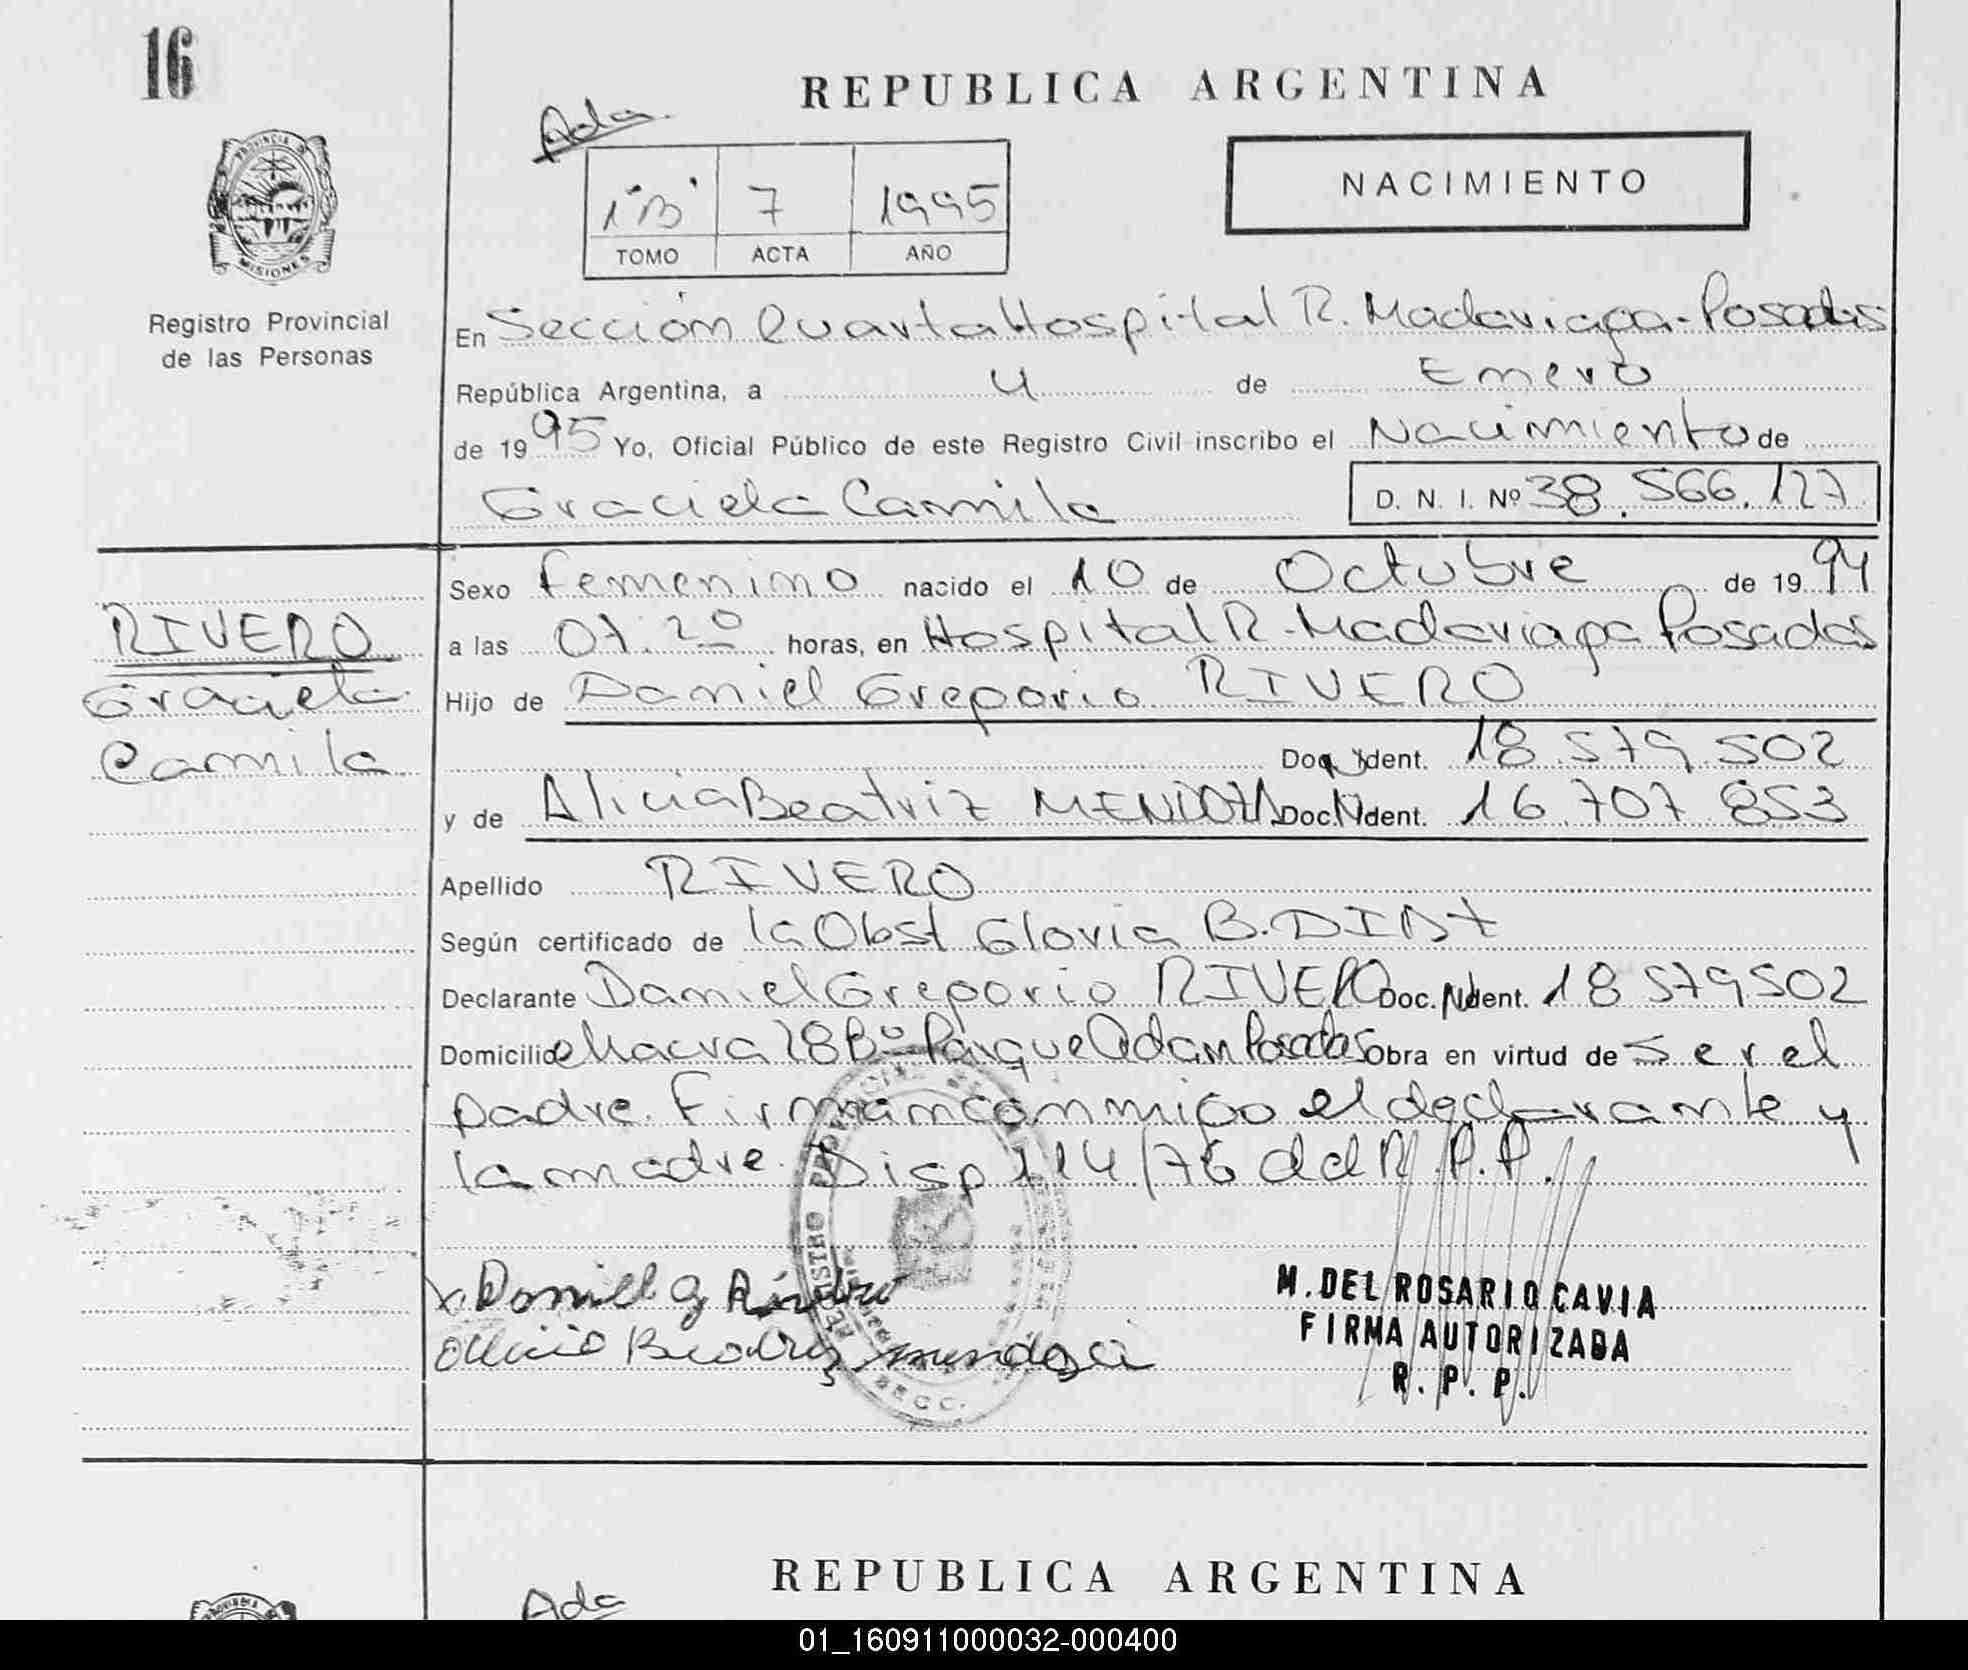 16
REPUBLICA ARGENTINA
Ada.
PROVINCIA D
MISIONES
1 "B" 7 1995
TOMO ACTA AÑO
NACIMIENTO
Registro Provincial
de las Personas
En Sección Cuarta Hospital R. Madariaga - Posadas
República Argentina, a 4 de Enero
de 1995 Yo, Oficial Público de este Registro Civil inscribo el Nacimiento de
Graciela Camila D. N. I. Nº 38.566.127
RIVERO
Graciela
Camila
Sexo femenino nacido el 10 de Octubre de 1994
a las 07.20 horas, en Hospital R. Madariaga Posadas
Hijo de Daniel Gregorio RIVERO
Doc. Ident. 18.579.502
y de Alicia Beatriz MENDOZA Doc. Ident. 16 707 853
Apellido RIVERO
Según certificado de la Obst Gloria B. DIAZ
Declarante Daniel Gregorio RIVERO Doc. Ident. 18 579502
Domicilio Chacra 28 Bº Parque Adam Posadas Obra en virtud de ser el
padre. Firman conmigo el declarante y
la madre. Disp 114/76 del R.P.P.
REGISTRO PROVINCIAL
x Daniel G Rivero
Alicia Beatriz Mendoza
M. DEL ROSARIO CAVIA
FIRMA AUTORIZADA
R. P. P.
REPUBLICA ARGENTINA
Ada
01_160911000032-000400